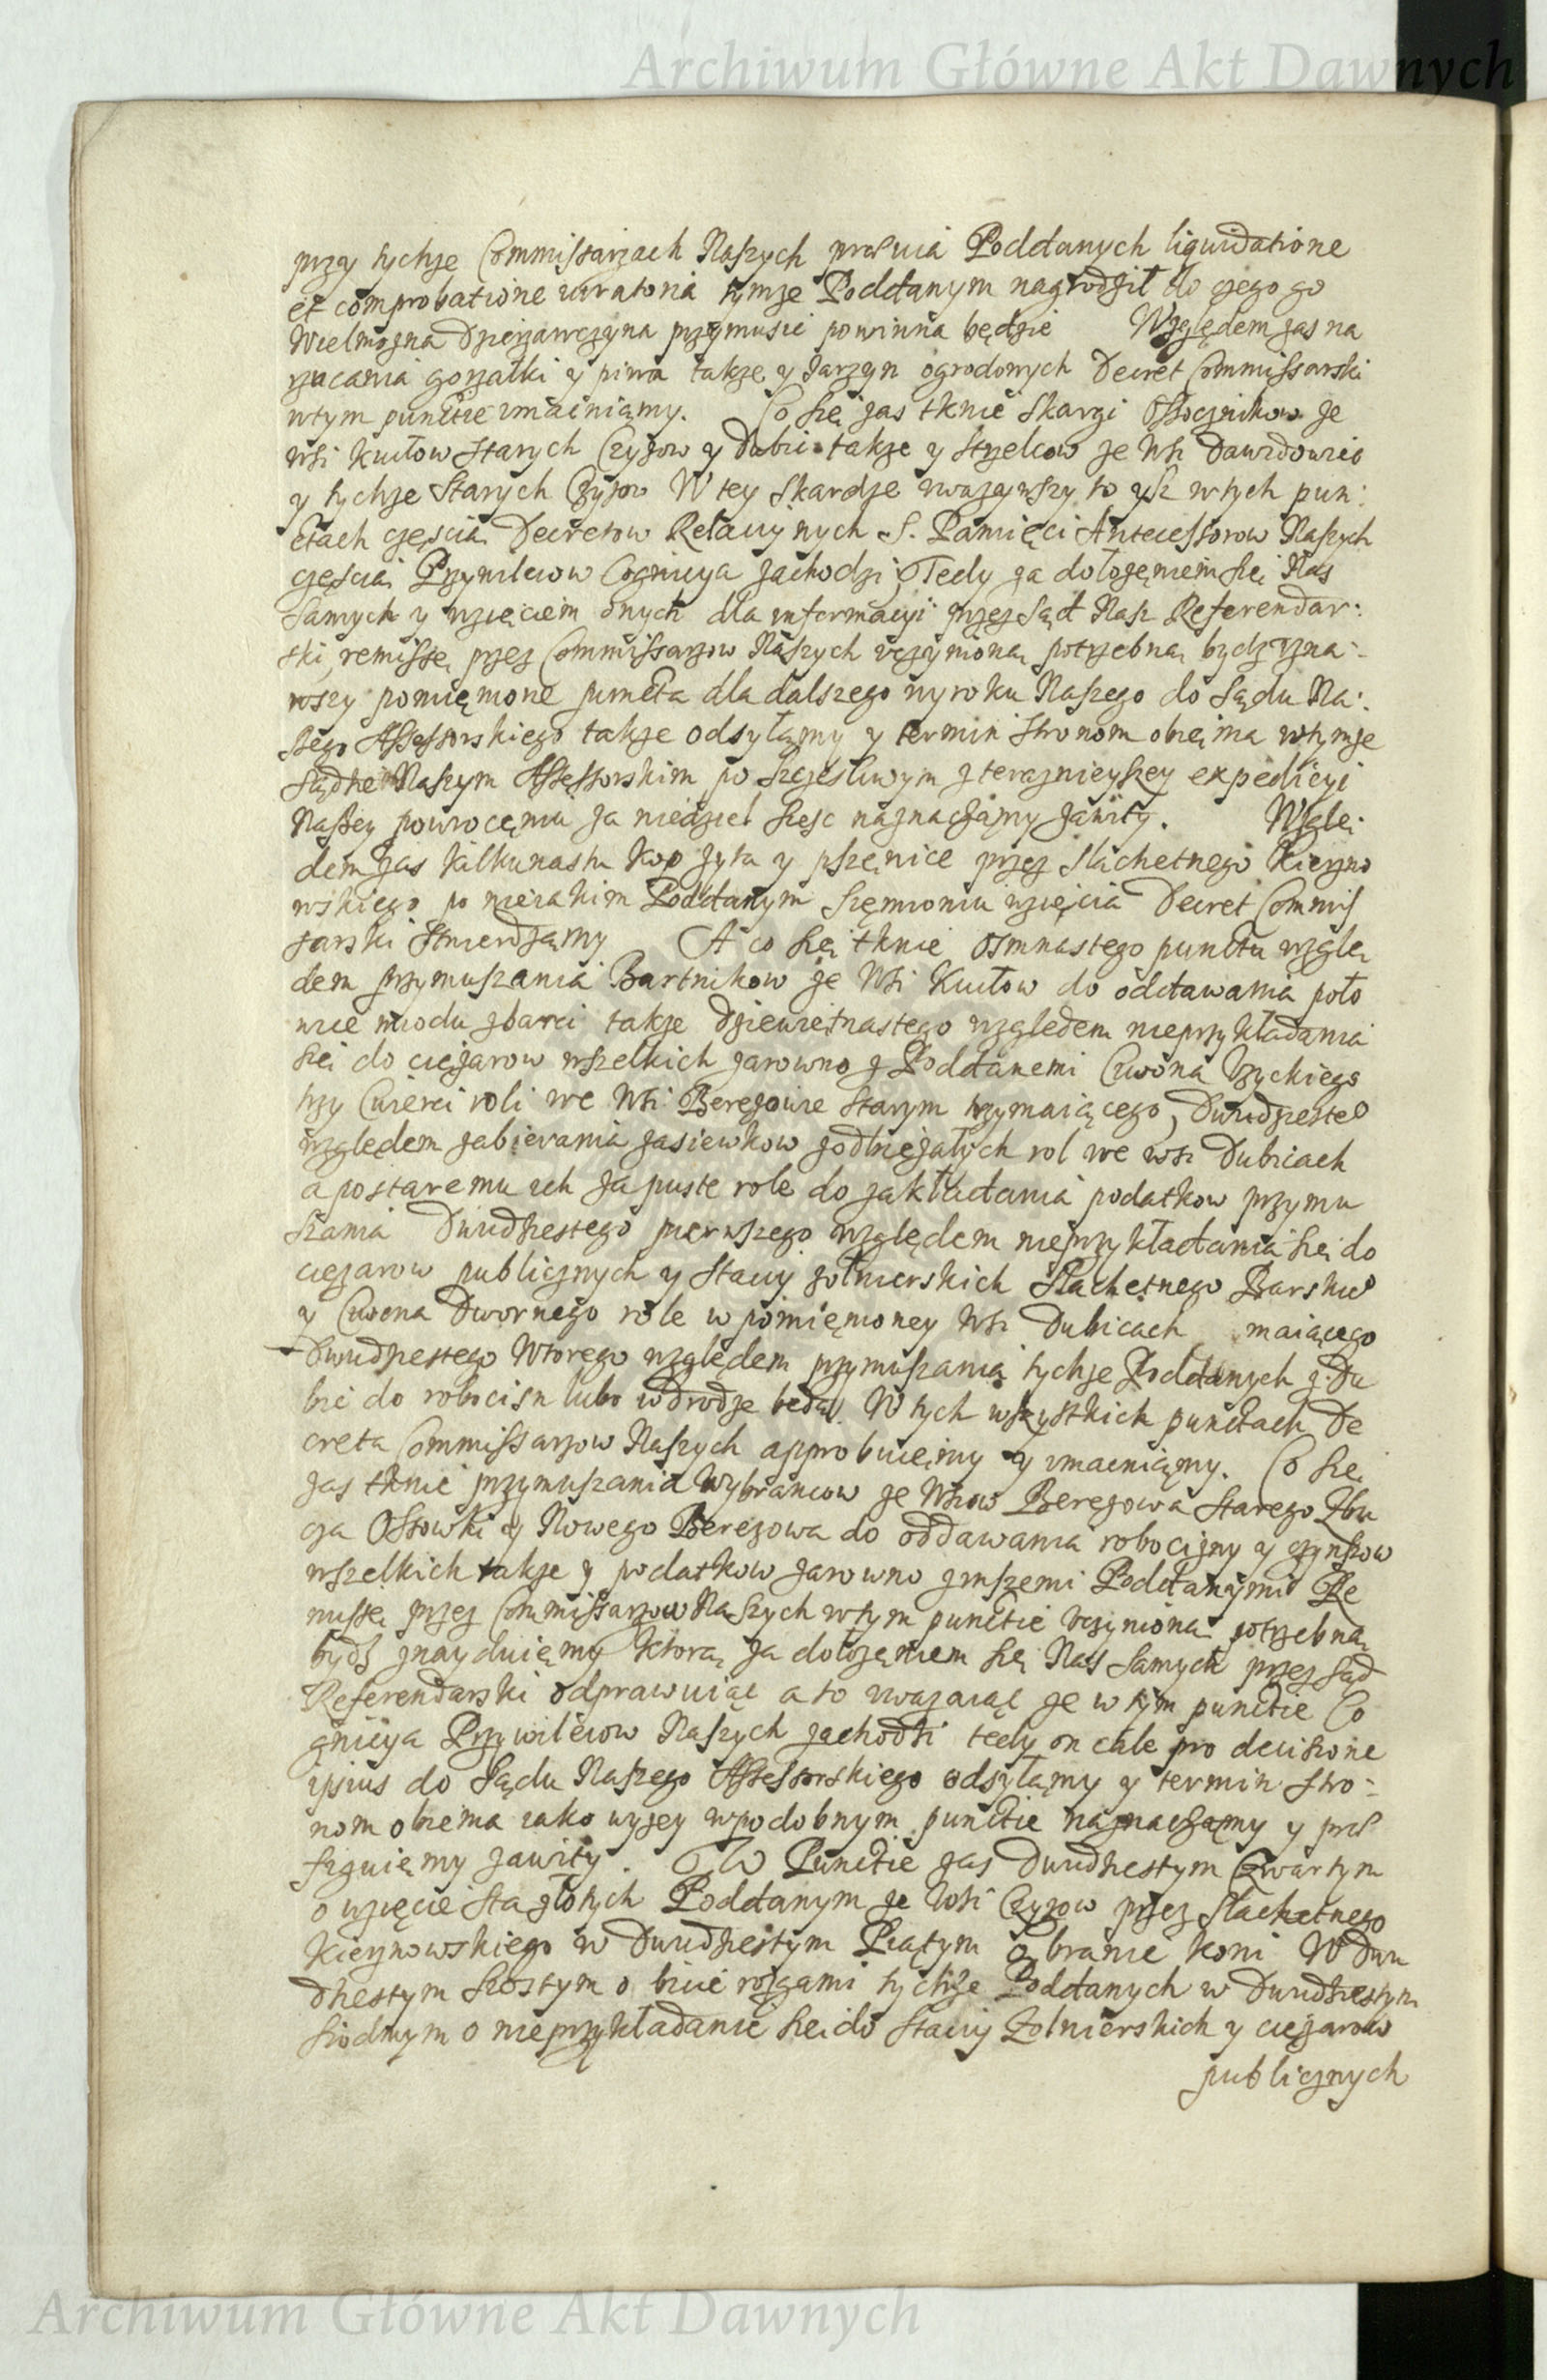 Archiwum Główne Akt Dawnych
przy tychze Commissarzach Naszych praevia Poddanych liquidatione
et comprobatione iuratoria tymze Poddanym nagrodził do czego go
Wielmozna Dzierzawczyna przymusić powinna będzie Względem zas na
rzucania gorzałki y piwa takze y Jarzyn ogrodowych Decret Commissarski
wtym punctie vmacniamy. Co się zas tknie Skargi Ossocznikow ze
wsi Kuitow Starych Czyzow y Dubic takze y Strzelcow ze Wsi Dawidowic
y tychze Starych Czyzow W tey Skardze vwazywszy to ysz wtych pun:
ctach częscią Decretow Relacyinych S. Pamięci Antecessorow Naszych
częscią Przywileiow Cognicya zachodzi, Tedy za dołozęniem się Nas
Samych y wzięciem onych dla informacyi przez Sąd Nasz Referendar:
ski, remissę przez Commissarzow Naszych vczynioną potrzebną bydz vzna:
wszy pomięnione puncta dla dalszego wyroku Naszego do Sądu Na:
szego Assessorskiego takze odsyłamy y termin Stronom obięma wtymze
Sądzie Naszym Assessorskim po szczęsliwym z teraznieyszey expedicyi
Naszey powrocęniu za niedziel szesc naznaczamy zawity. Wzglę:
dem zas kilkunastu kop zyta y pszęnice przez Slachetnego Kierzno
wskiego po nieiakim Poddanym Sięmioniu wzięcia Decret Commis
sarski Stwierdzamy A co się tknie Osmnastego punctu wzglę
dem przymuszania Bartnikow ze Wsi Kuitow do oddawania poło
wice miodu zbarci takze dziewiętnastego względem nieprzykładania
się do cięzarow wszelkich zarowno z Poddanemi Iwona Vzyckiego
trzy Cwierci roli we Wsi Berezowie Starym trzymaiącego, Dwudziestego
względem zabierania zasiewkow zodbiezałych rol we wsi Dubicach
a postaremu ich za puste role do zakładania podatkow przymu
szania Dwudziestego pierwszego względem nieprzykładania się do
cięzarow publicznych y Stacyi zołnierskich Slachetnego Barskiego
y Iwona Dwornego role w pomięnioney Wsi Dubicach maiącego
Dwudziestego Wtorego względem przymuszania tychze Poddanych z Du
bic do robocisn lubo wdrodze będą. W tych wszystkich punctach De
creta Commissarzow Naszych approbuięmy y vmacniamy. Co się
zas tknie przymuszania Wybrancow ze Wsiow Berezowa Starego Zbu
cza Ossowki y Nowego Berezowa do oddawania robocizny y czynszow
wszelkich takze y podatkow zarowno zinszemi Poddanymi Re
missę przez Commissarzow Naszych wtym punctie vczynioną potrzebną
bydz znayduięmy ktorą za dołozęniem się Nas Samych przez Sąd
Referendarski odprawuiąc a to vwazaiąc ze w tym punctie Co
gnicya Przywileiow Naszych zachodzi tedy on cale pro decisione
ipsius do Sądu Naszego Assessorskiego odsyłamy y termin Stro:
nom obiema iako wyzey wpodobnym punctie naznaczamy y pre
figuięmy zawity. W Punctie zas Dwudziestym Czwartym
o wzięcie Sta złotych Poddanym ze Wsi Czyzow przez Slachetnego
Kierznowskiego w Dwudziestym Piątym o branie koni W Dwu
dziestym Szostym o bicie rozgami tychze Poddanych w Dwudziestym
Siodmym o nieprzykładanie się do Stacyi Zołnierskich y cięzarow
publicznych
Archiwum Główne Akt Dawnych